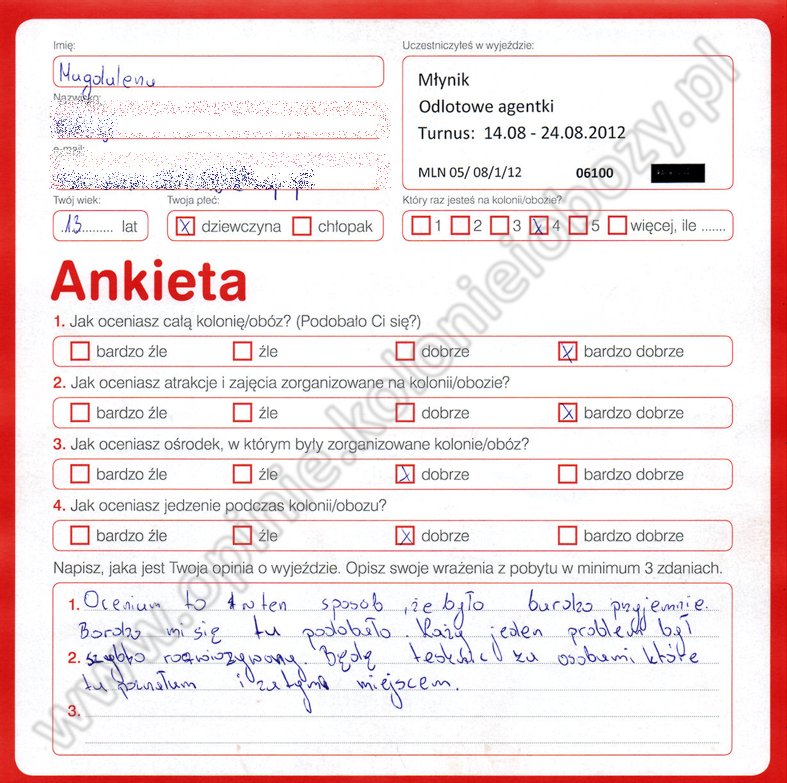 Imię:
Magdalena
Nazwisko:
e-mail:
Twój wiek:
13 lat
Twoja płeć:
X dziewczyna chłopak
Uczestniczyłeś w wyjeździe:
Młynik
Odlotowe agentki
Turnus: 14.08 - 24.08.2012
MLN 05/ 08/1/12 06100
Który raz jesteś na kolonii/obozie?
1 2 3 X 4 5 więcej, ile .......
Ankieta
1. Jak oceniasz całą kolonię/obóz? (Podobało Ci się?)
bardzo źle źle dobrze X bardzo dobrze
2. Jak oceniasz atrakcje i zajęcia zorganizowane na kolonii/obozie?
bardzo źle źle dobrze X bardzo dobrze
3. Jak oceniasz ośrodek, w którym były zorganizowane kolonie/obóz?
bardzo źle źle X dobrze bardzo dobrze
4. Jak oceniasz jedzenie podczas kolonii/obozu?
bardzo źle źle X dobrze bardzo dobrze
Napisz, jaka jest Twoja opinia o wyjeździe. Opisz swoje wrażenia z pobytu w minimum 3 zdaniach.
1. Oceniam to na ten sposób, że było bardzo przyjemnie.
Bardzo mi się tu podobało. Każy jeden problem był
2. szybko rozwiozywany. Będę tesknić za osobami które
tu poznałam i za tym miejscem.
3.
www.opinie.kolonieiobozy.pl